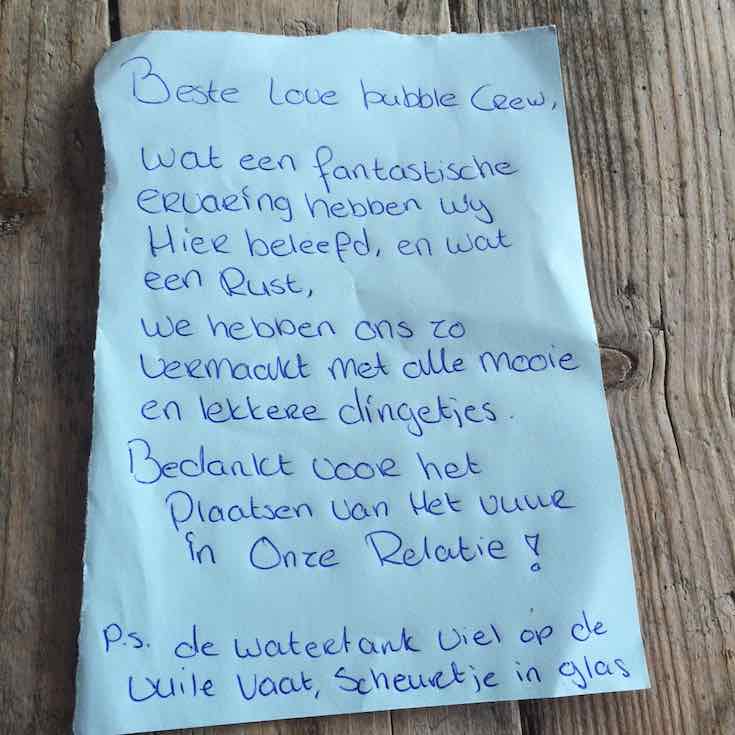 Beste Love bubble Crew,
Wat een fantastische
ervaring hebben wy
Hier beleefd, en wat
een Rust,
We hebben ons zo
vermaakt met alle mooie
en lekkere dingetjes.
Bedankt voor het
Plaatsen van Het vuur
in Onze Relatie!
P.S. de watertank viel op de
vuile vaat, Scheurtje in glas